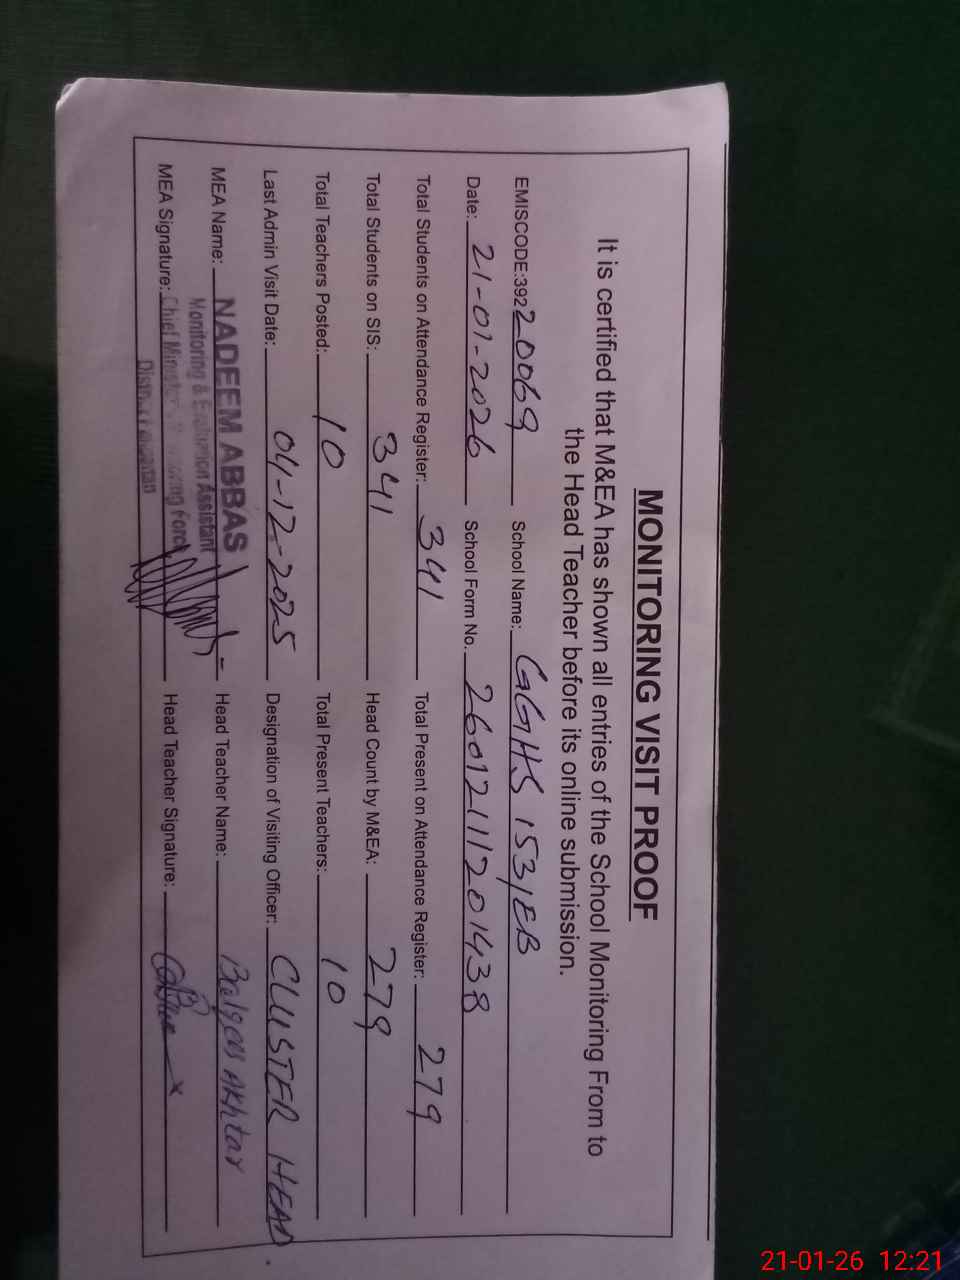 MONITORING VISIT PROOF
It is certified that M&EA has shown all entries of the School Monitoring From to
the Head Teacher before its online submission.
EMISCODE:39220069 School Name: GGHS 153/EB
Date: 21-01-2026 School Form No. 26012111201438
Total Students on Attendance Register: 341 Total Present on Attendance Register: 279
Total Students on SIS: 341 Head Count by M&EA: 279
Total Teachers Posted: 10 Total Present Teachers: 10
Last Admin Visit Date: 04-12-2025 Designation of Visiting Officer: CLUSTER HEAD
MEA Name: NADEEM ABBAS Head Teacher Name: Balqees Akhtar
Monitoring & Evaluation Assistant
MEA Signature: Chief Minister Monitoring Force Head Teacher Signature:
District
21-01-26 12:21